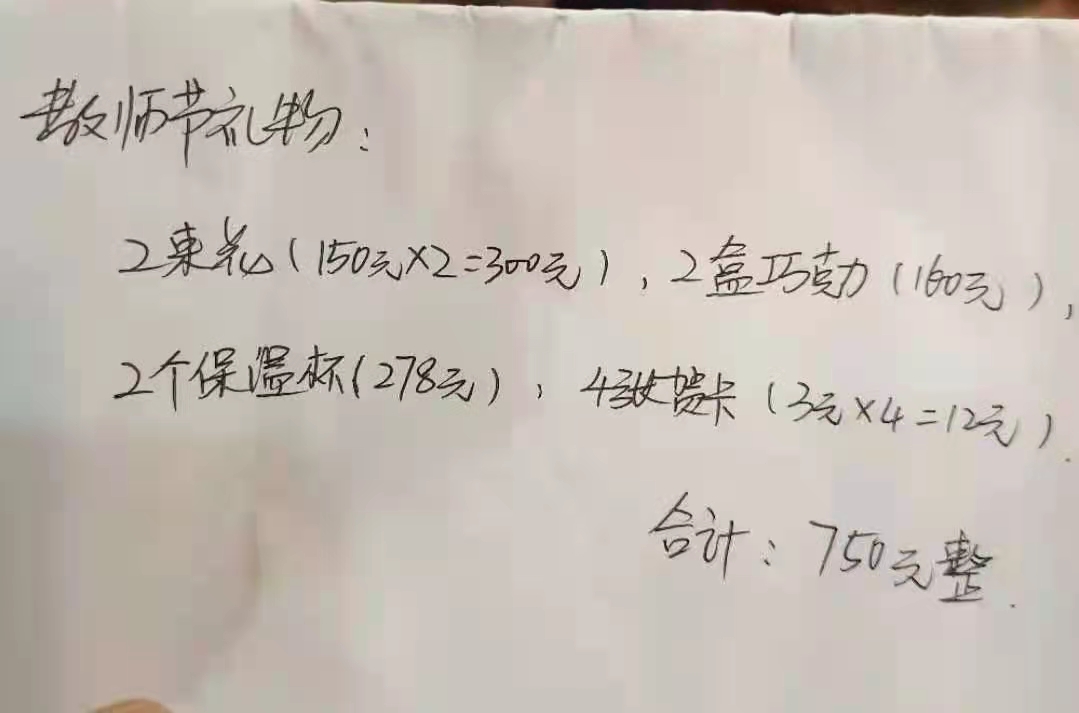 教师节礼物：
2束花（150元×2=300元），2盒巧克力（160元），
2个保温杯（278元），4张贺卡（3元×4=12元）.
合计：750元整.